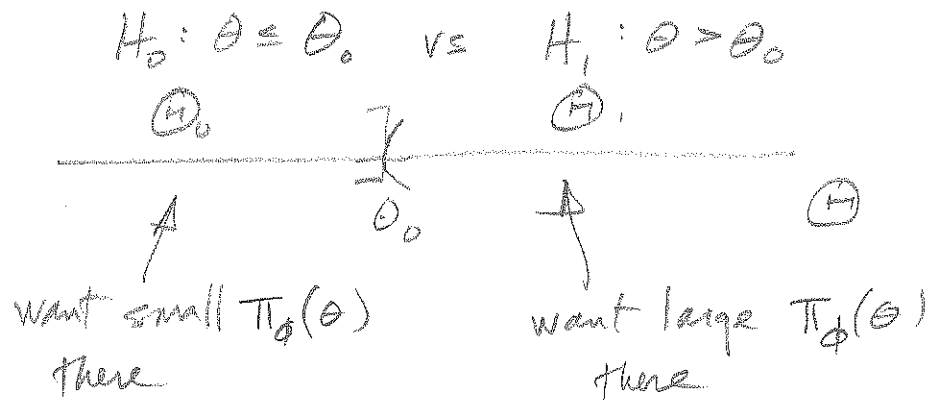 H₀ : θ ≤ θ₀ vs H₁ : θ > θ₀
Θ₀ Θ₁
] (
θ₀ Θ
want small π_ϕ(θ) want large π_ϕ(θ)
there there